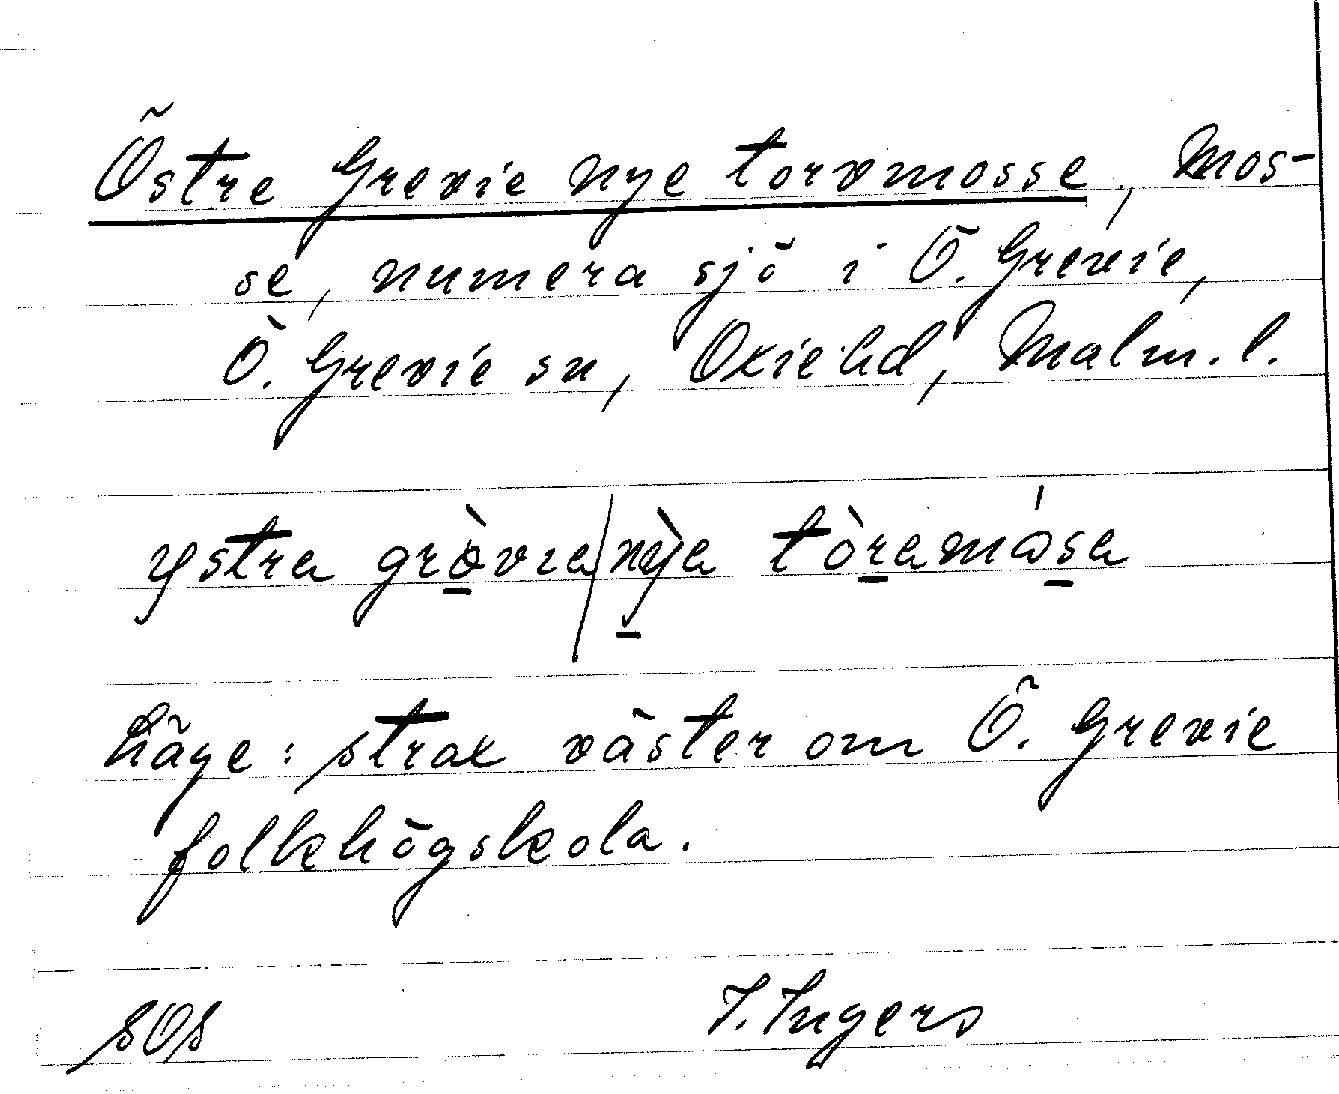 Östre Grevie nye torvmosse, Mos-
se, numera sjö i Ö. Grevie,
Ö. Grevie sn, Oxie hd, Malm. l.
ystra grò̠vıa/nỳ̠a tòr̠amás̠a
Läge: strax väster om Ö. Grevie
folkhögskola.
SOS I. Ingers